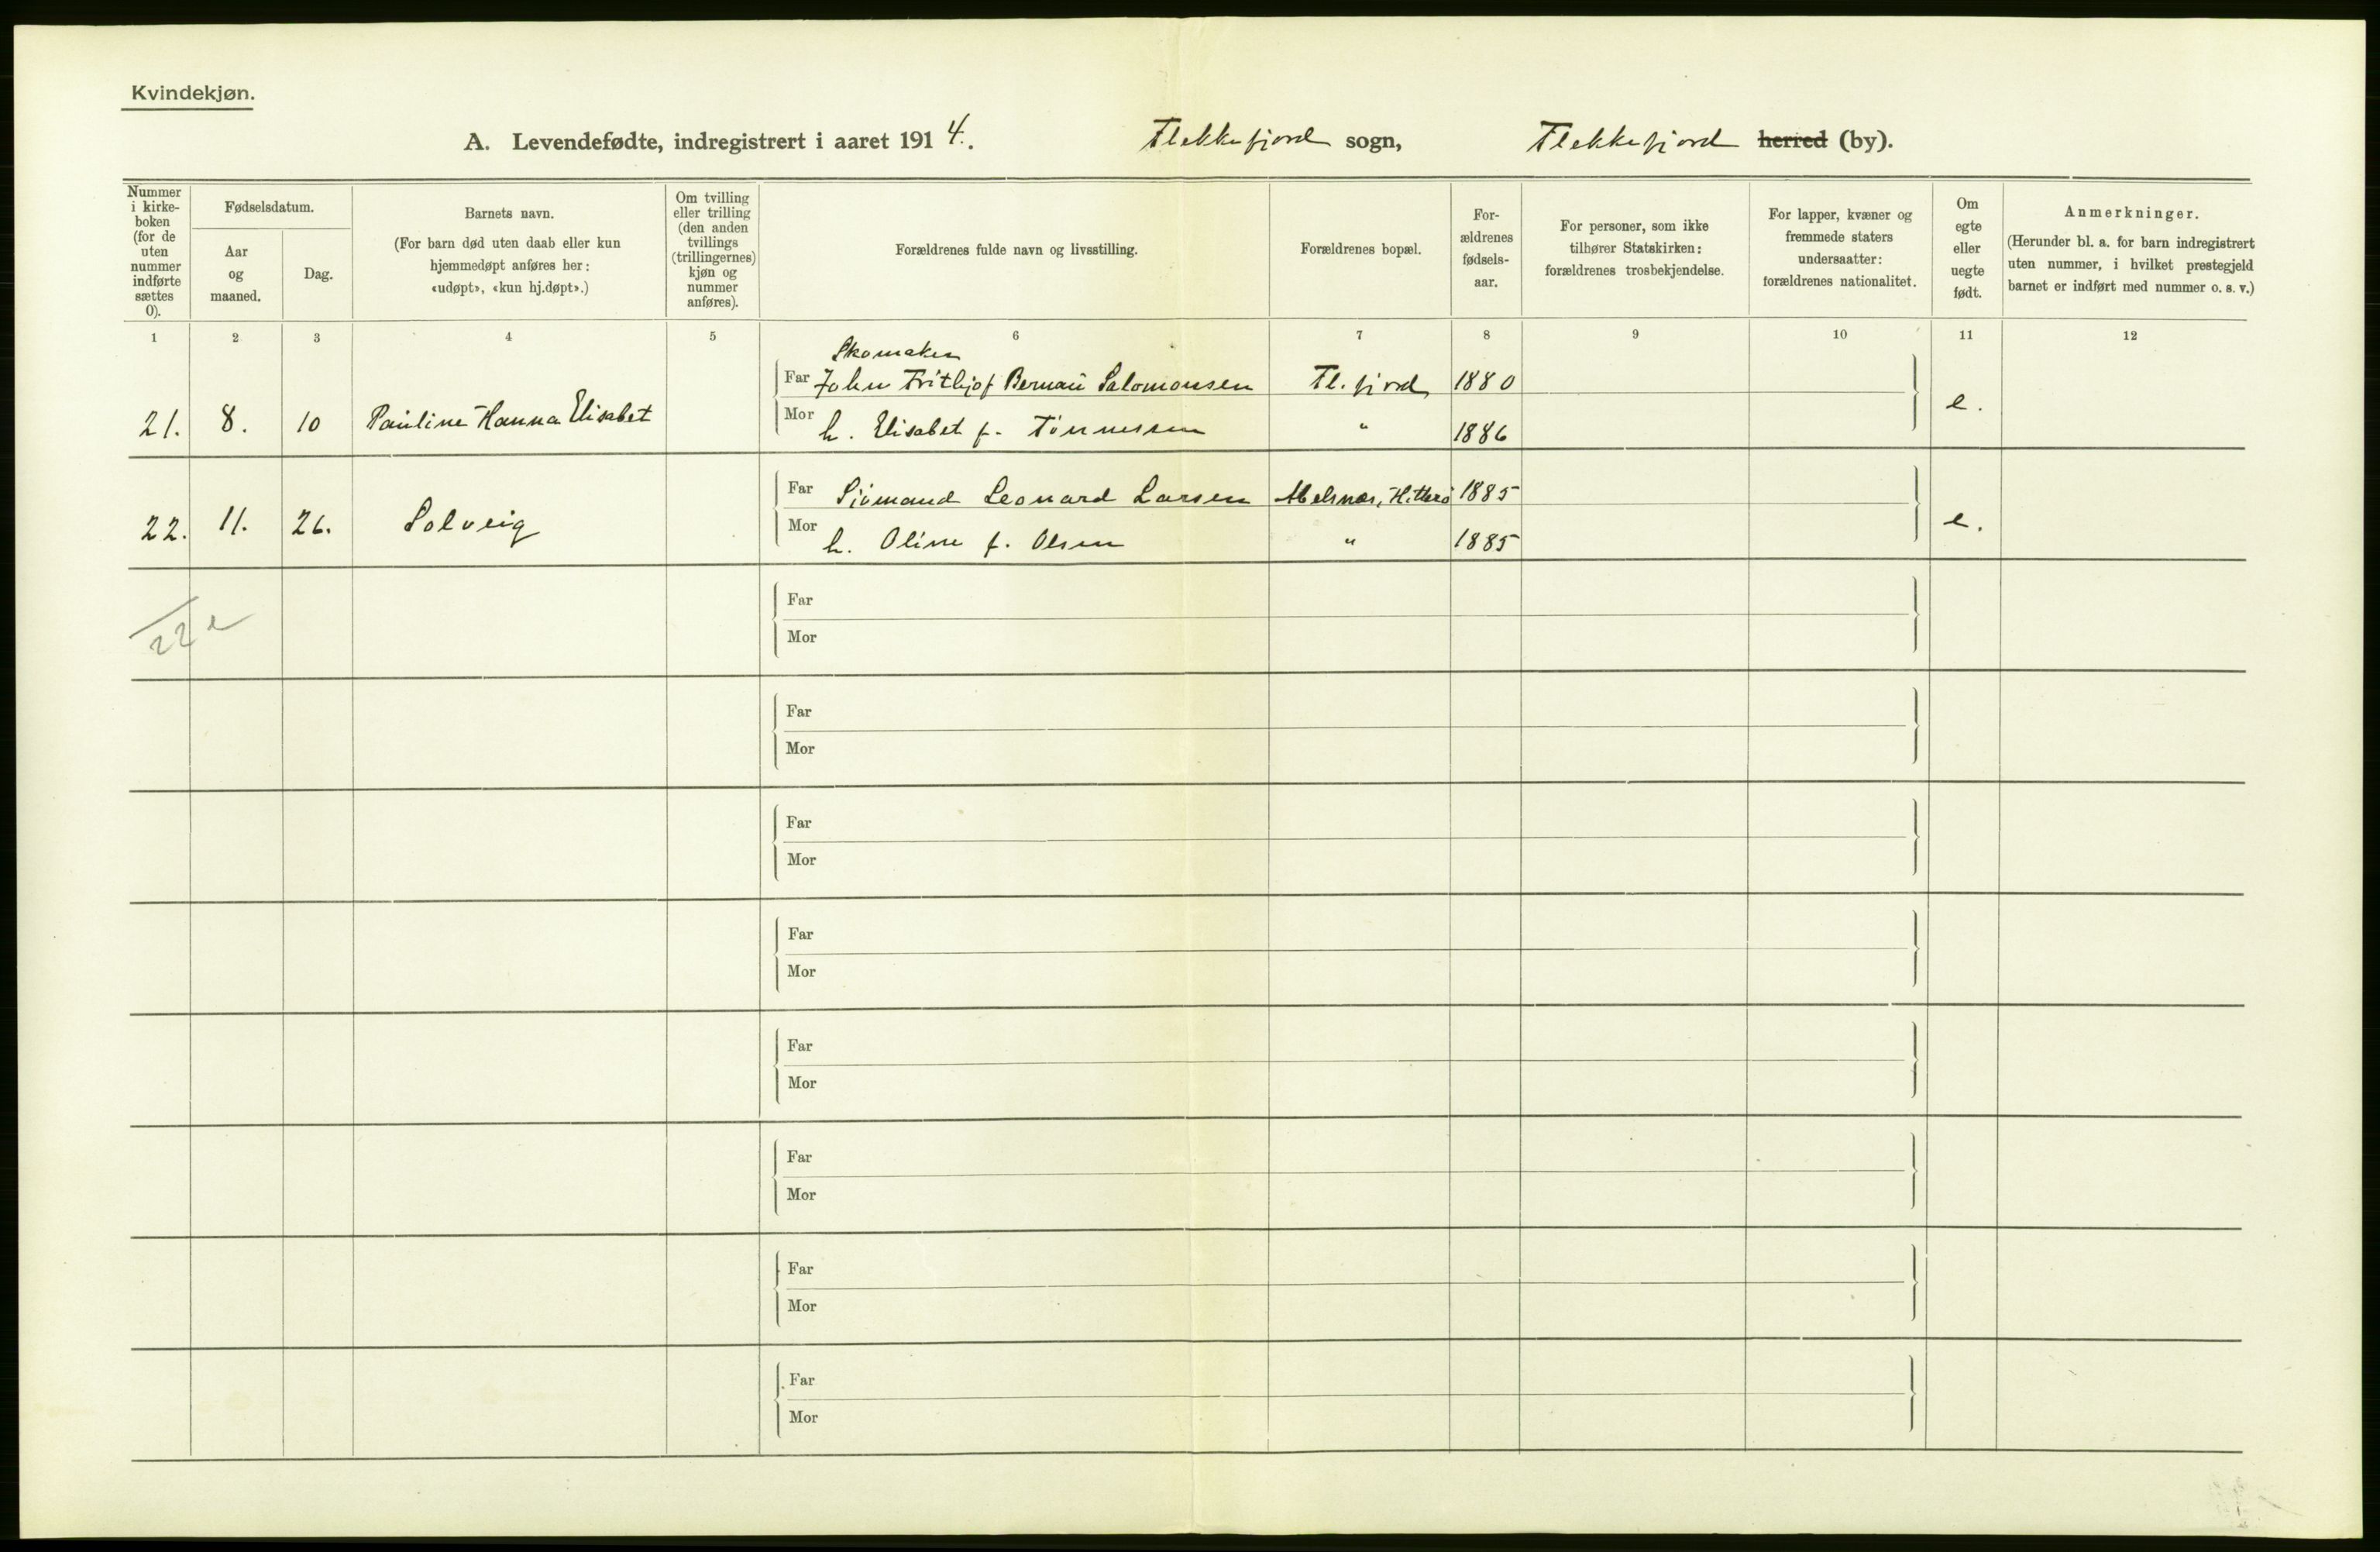 Kvindekjøn.
A. Levendefødte, indregistrert i aaret 1914. Flekkefjord sogn, Flekkefjord herred (by).
Nummer i kirke-boken (for de uten nummer indførte sættes 0).
Fødselsdatum.
Aar og maaned.
Dag.
Barnets navn.
(For barn død uten daab eller kun hjemmedøpt anføres her: «udøpt», «kun hj.døpt».)
Om tvilling eller trilling (den anden tvillings (trillingernes) kjøn og nummer anføres).
Forældrenes fulde navn og livsstilling.
Forældrenes bopæl.
For-ældrenes fødsels-aar.
For personer, som ikke tilhører Statskirken: forældrenes trosbekjendelse.
For lapper, kvæner og fremmede staters undersaatter: forældrenes nationalitet.
Om egte eller uegte født.
Anmerkninger.
(Herunder bl. a. for barn indregistrert uten nummer, i hvilket prestegjeld barnet er indført med nummer o. s. v.)
1 2 3 4 5 6 7 8 9 10 11 12
Skomaker
Far John Frithjof Salomonsen Fl. fjord 1880
21. 8. 10 Pauline Hanna Elisabet e.
Mor h. Elisabet f. Tönnessen " 1886
Far Sjömand Leonard Larsen Abelsnæs, Hitterö 1885
22. 11. 26. Solveig e.
Mor h. Oline f. Olsen " 1885
22 e
Far
Mor
Far
Mor
Far
Mor
Far
Mor
Far
Mor
Far
Mor
Far
Mor
Far
Mor